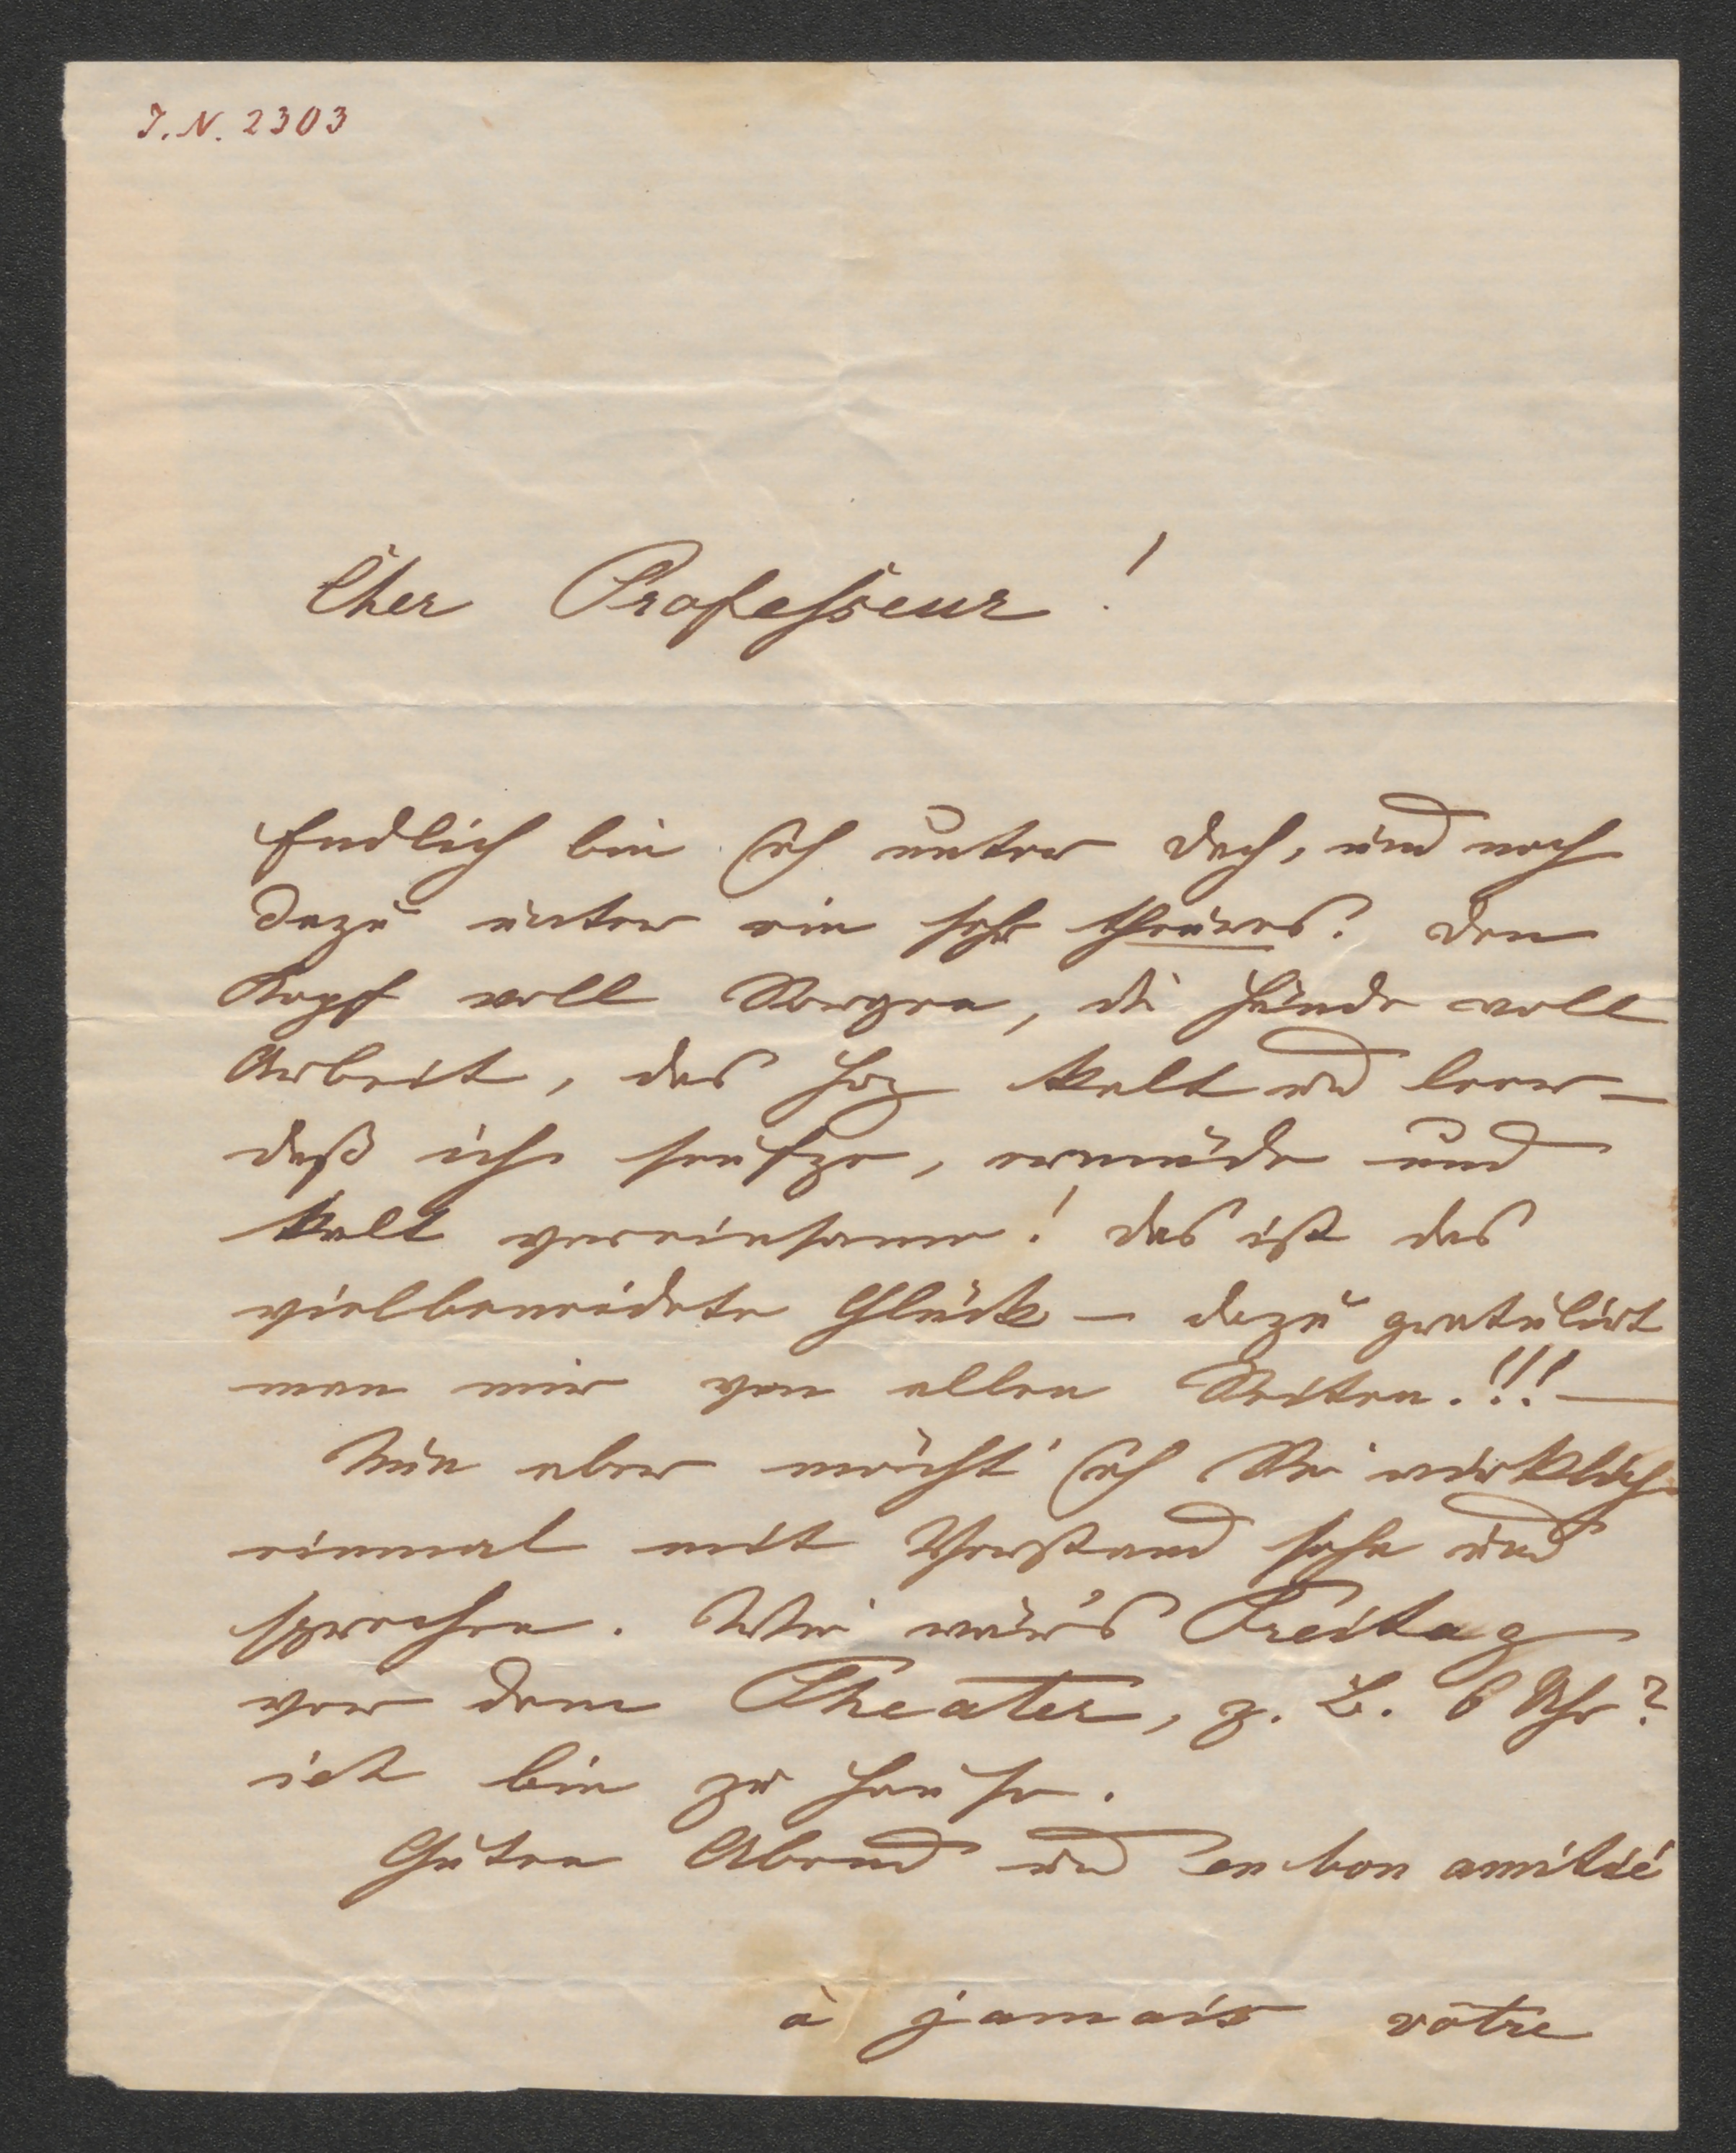 I. N. 2303
Cher Professeur!
Endlich bin ich unter Dach, und noch
dazu unter ein sehr theures? Den
Kopf voll Sorgen, die Hände voll
Arbeit, das Herz kalt und leer –
daß ich seufze, ermüde und
kalt vereinsame! das ist das
vielbeneidete Glück – dazu gratulirt
man mir von allen Seiten.!!! –
Nun aber möcht' ich Sie wirklich
einmal mit Verstand sehn und
sprechen. Wie wär's Freitag
vor dem Theater, z. B. 6 Uhr?
ich bin zu Hause.
Guten Abend und en bon amitié
à jamais vôtre